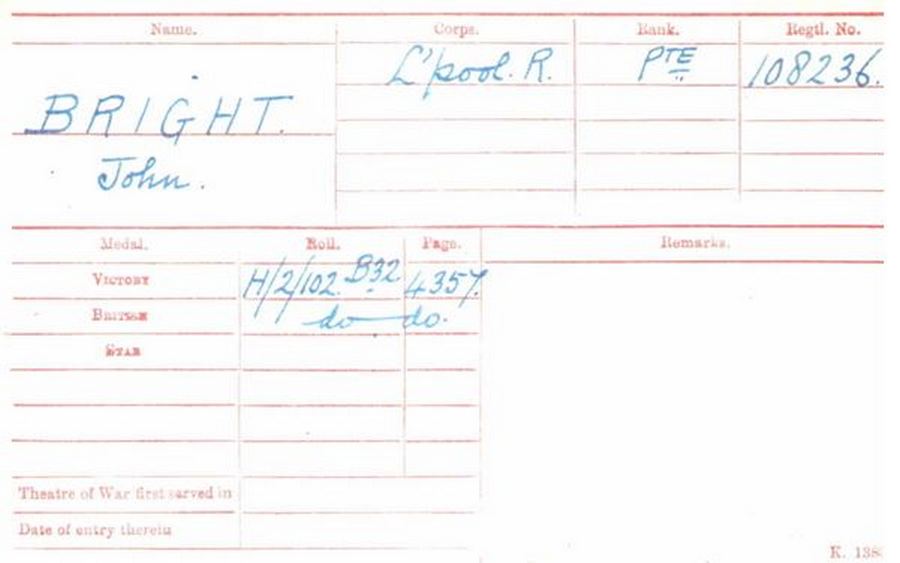 Name. Corps. Rank. Regtl. No.
BRIGHT. L'pool. R. PTE 108236.
John.
Medal. Roll. Page. Remarks.
VICTORY H/2/102. B32 4357.
BRITISH do do.
STAR
Theatre of War first served in
Date of entry therein
K. 138